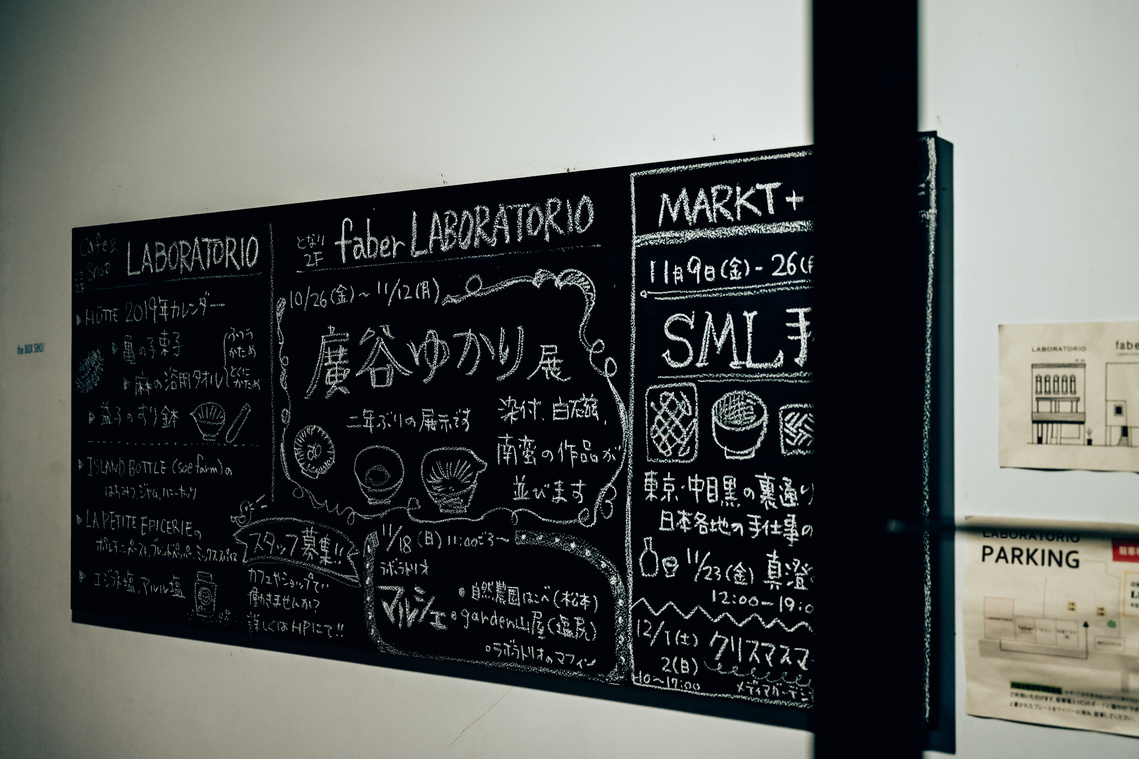 the BOX SHOP
Cafes
LABORATORIO
HÜTTE 2019年カレンダー
亀の子束子
麻の浴用タオル
ふつう
かため
とくに
かため
益子のすり鉢
ISLAND BOTTLE (sœ farm)の
はちみつ、ジャム、ハニーナッツ
LA PETITE EPICERIEの
エジネ塩、マルル塩
スタッフ募集!!
カフェやショップで
働きませんか?
詳しくはHPにて!!
となり
2F
faber LABORATORIO
10/26(金)~11/12(月)
廣谷ゆかり展
二年ぶりの展示です
染付、白磁、
南蛮の作品が
並びます
11/18(日) 11:00ごろ~
ラボラトリオ
マルシェ
自然農園はこべ(松本)
garden山屋(塩尻)
ラボラトリオのマフィン
MARKT+
11月9日(金)-26(月
SML手
東京・中目黒の裏通り
日本各地の手仕事の
11/23(金) 真澄
12:00-19:0
12/1(土)
2(日)
10~17:00
クリスマスマ
メディアガーデン
LABORATORIO
fabe
LABORATORIO
PARKING